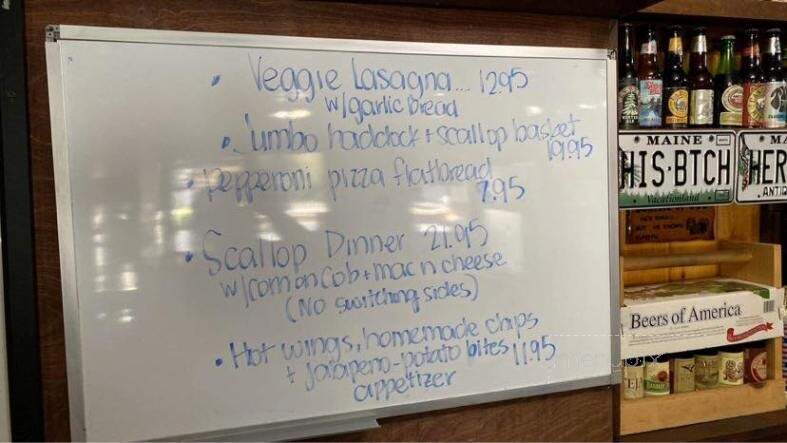 • Veggie Lasagna... 12.95
w/garlic bread
• Jumbo haddock + scallop basket
19.95
• pepperoni pizza flatbread
7.95
• Scallop Dinner 21.95
w/corn on cob + mac n cheese
(No switching sides)
• Hot wings, homemade chips
+ jalapeno-potato bites 11.95
appetizer
MAINE
HIS·BTCH
Vacationland
MA
HER
ANTIQ
Beers of America